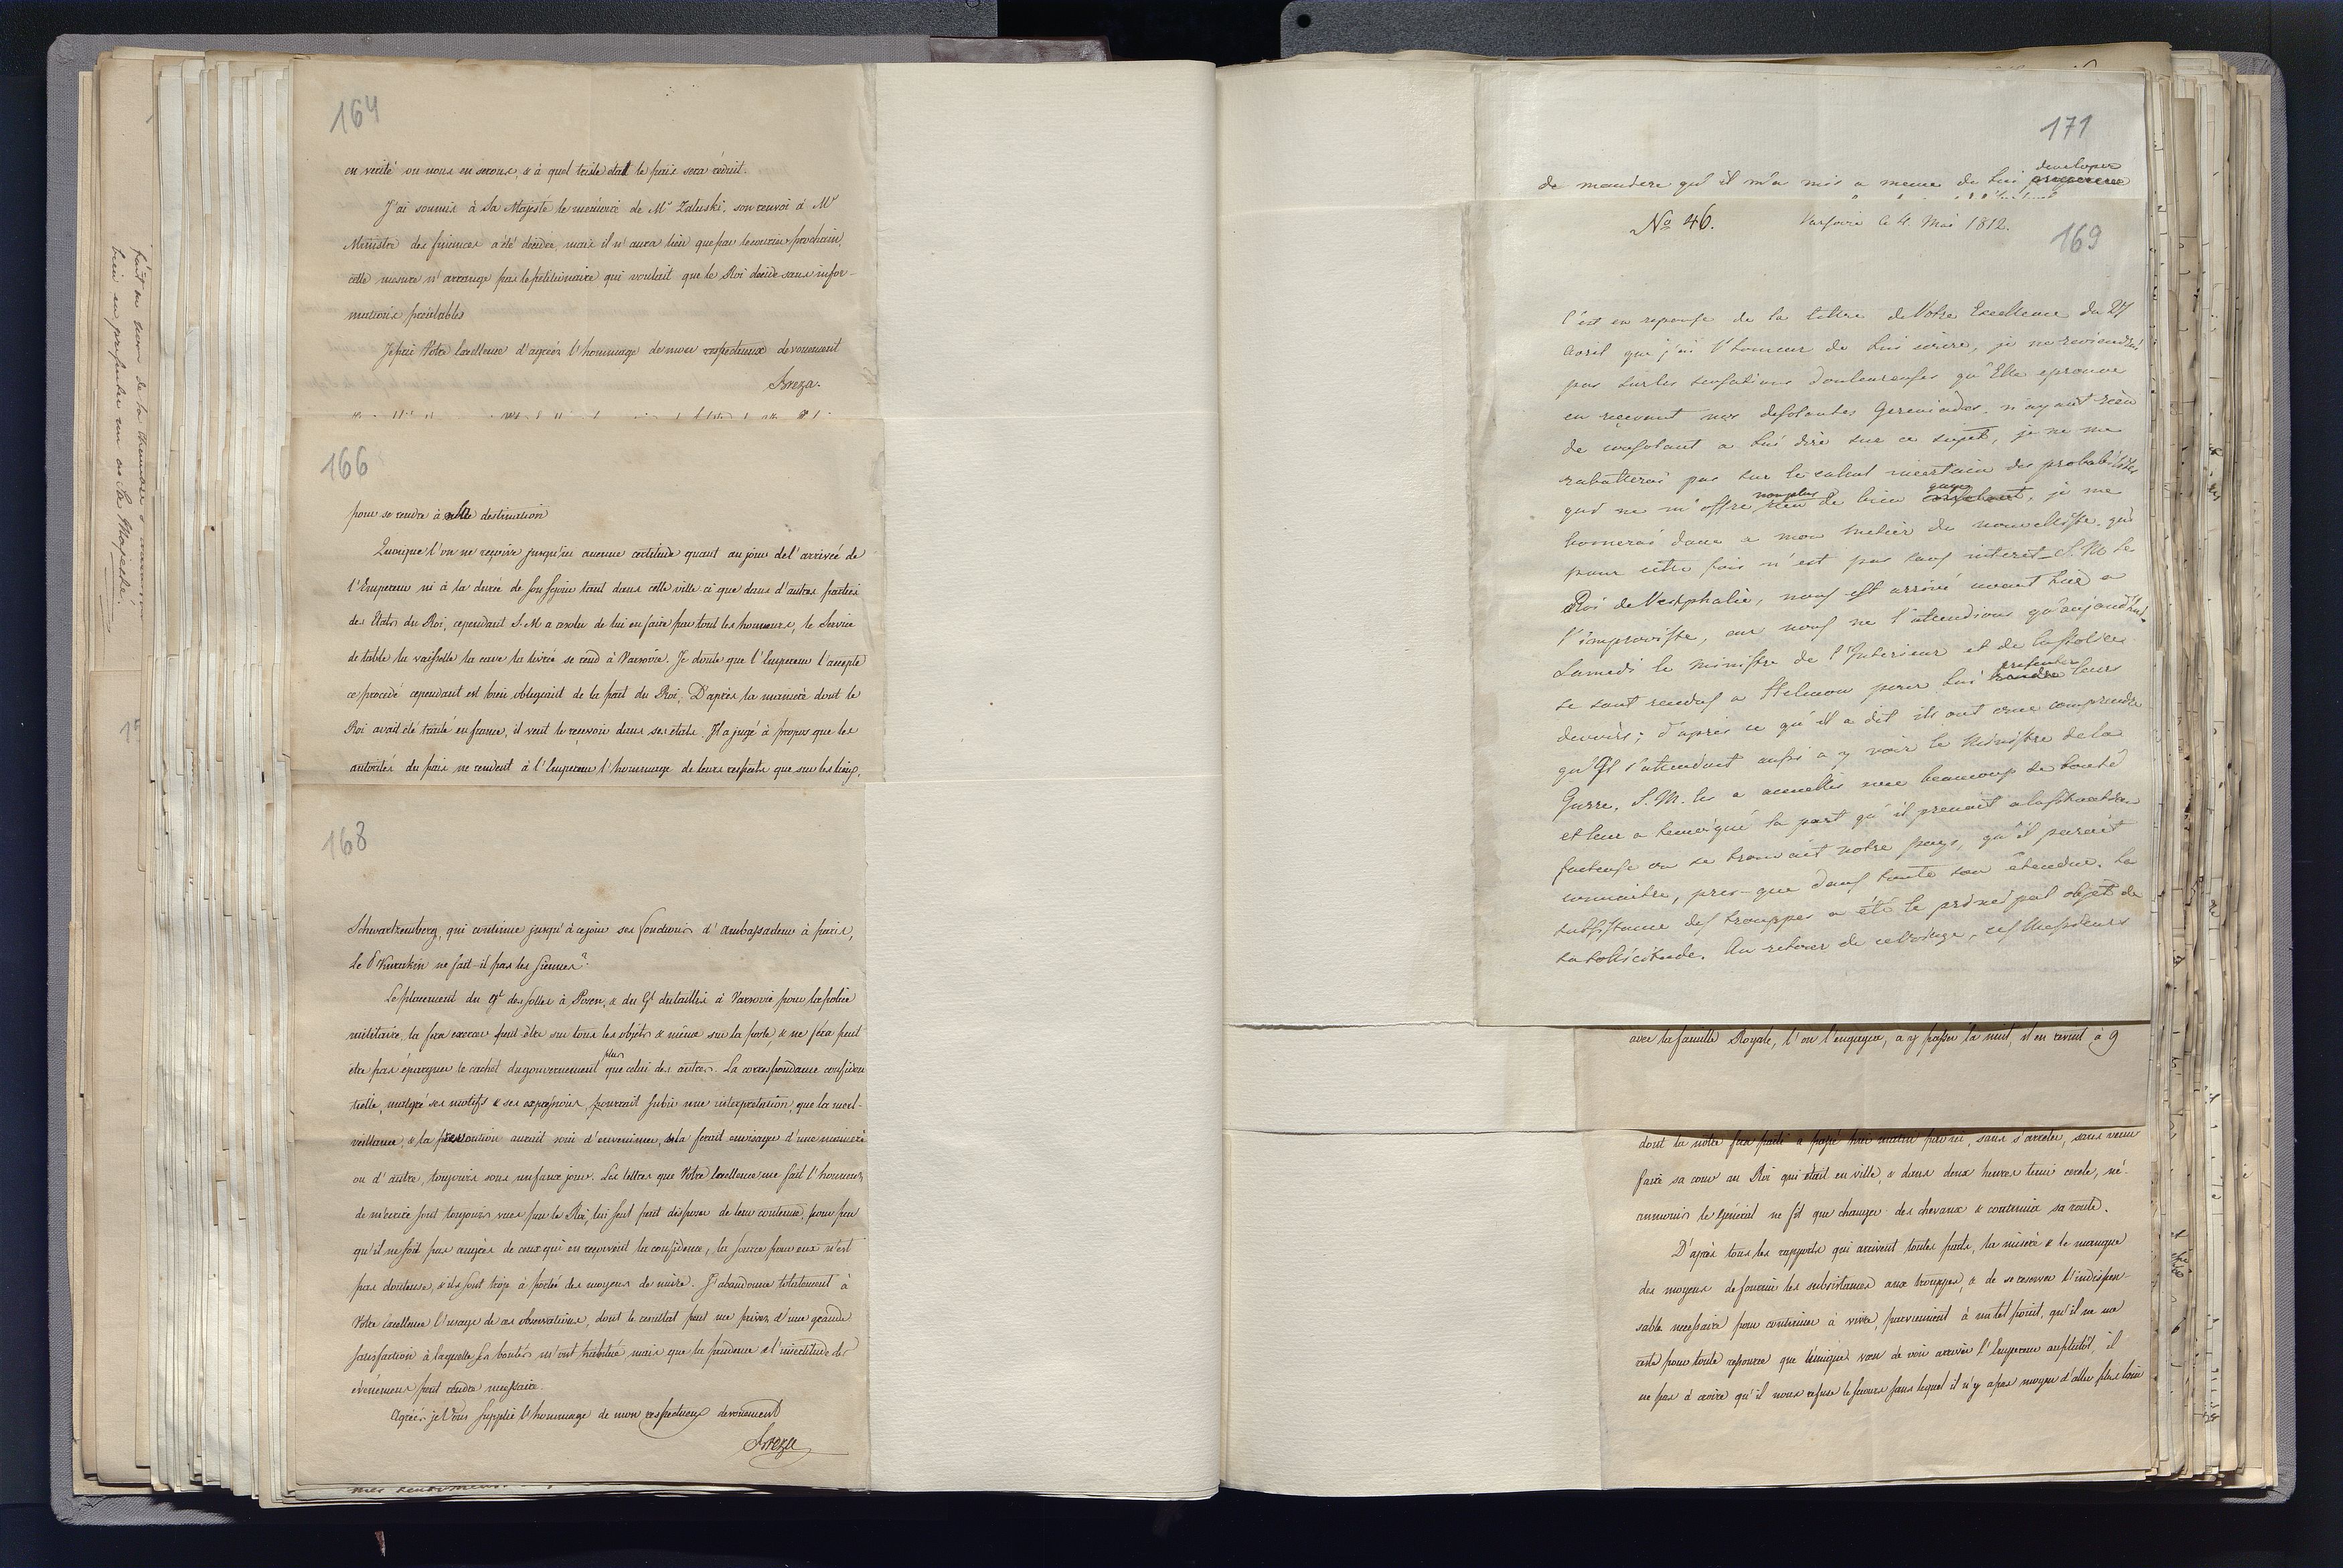 164
en verité ou nous en serons, & à quel triste etat le païs sera réduit.
J'ai soumis à Sa Majesté le memoire de Mr Zaluski, son renvoi à Mr
Ministre des finances a été décidé, mais il n'aura lieu que par le courier prochain,
cette mesure n'arrange pas le pétitionaire qui voulait que le Roi décide sans infor-
mations préalables
Je prie Votre Excellence d'agréer l'hommage de mon respectueux devouement
Breza.
166
pour se rendre à sa destination
Quoique l'on ne reçoive jusqu'ici aucune certitude quant au jour de l'arrivée de
l'Empereur ni à la durée de son sejour tant dans cette ville ci que dans d'autres parties
des Etats du Roi, cependant S. M a resolu de lui en faire par tout les honneurs, le Service
de table la vaisselle la cave la livrée se rend à Varsovie. Je doute que l'Empereur l'accepte
ce procedé cependant est bien obligeant de la part du Roi. D'après la manière dont le
Roi avait été traité en france, il veut le recevoir dans ses etats. Il a jugé à propos que les
autorités du païs ne rendent à l'Empereur l'hommage de leurs respects que sur les lieux,
168
Schwartzemberg, qui continue jusqu'à ce jour ses fonctions d'ambassadeur à paris,
Le P Kurakin ne fait-il pas les siennes?
Le placement du Gl des solles à Posen, & du Gl dutaillis à Varsovie pour la police
militaire, la fera exercer peut être sur tous les objets & même sur la poste, & ne fera peut
etre pas épargner le cachet du gouvernement plus que celui des autres. La correspondance confiden
tielle, malgré ses motifs & ses expressions, pourrait subir une interpretation, que la mal-
veillance, & la prevention aurait soin d'envenimer, & la ferait envisager d'une manière
ou d'autre, toujours sous un faux jour. Les lettres que Votre Excellence me fait l'honneur
de m'ecrire sont toujours vues par le Roi, lui seul peut disposer de leur contenu, pour peu
qu'il ne soit pas auprès de ceux qui en reçoivent la confidence, la source pour eux n'est
pas douteuse, & ils sont trop à portée des moyens de nuire. J'abandonne totalement à
Votre Excellence l'usage de ces observations, dont le resultat peut me priver d'une grande
satisfaction à laquelle ses bontés m'ont habitué mais que la prudence & l'incertitude des
evénemens peut rendre necessaire.
Agréez je Vous supplie l'hommage de mon respectueux devouement
Breza
171
de mandere qu'il m'a mis a meme de lui developer
No 46. Varsovie le 4. Mai 1812.
169
C'est en reponse de la lettre de Votre Excellence du 27
Avril que j'ai l'honneur de lui ecrire, je ne reviendrai
pas sur les sensations douloureuses qu'Elle eprouve
en recevant nos desolantes Geremiades. n'ayant rien
de consolant a lui dire sur ce sujet, je ne me
rabatterai pas sur le calcul incertain des probabilités
qui ne m'offre non plus rien de bien
je me
bornerai donc a mon metier de nouvelliste. qui
pour cette fois n'est pas sans interet_S. M le
Roi de Vestphalie, nous est arrivé avant hier a
l'improviste, car nous ne l'attendions qu'aujourd'hui.
Samedi le Ministre de l'Interieur et de la Police
se sont rendus a pour lui presenter leurs
devoirs; d'après ce qu'il a dit ils ont crue comprendre
qu'Il s'attendait aussi a y voir le Ministre de la
Guerre. S. M. les a accueillis avec beaucoup de bonté
et leur a temoigné la part qu'il prenait a la situation
facheuse ou se trouvait notre pays, qu'il parait
connaitre, pres-que dans toute son étendue. La
subsistance des trouppes a été le principal objet de
sa sollicitude. Au retour de ce Voiage, ces Messieurs
avec la famille Royale, l'on l'engagea, a y passer la nuit, il en revint à 9
dont la notte fait partie a passé hier matin par ici, sans s'arreter, sans venir
faire sa cour au Roi qui etait en ville, & dans deux heures tenu cercle, né-
anmoins le Général ne fit que changer des chevaux & continuer sa route.
D'après tous les rapports qui arrivent toutes parts, la misere & le manque
des moyens de fournir les subsistances aux trouppes, & de se reserver l'indispen-
sable necessaire pour continuer à vivre, parviennent à un tel point, qu'il ne me
reste pour toute ressource que l'unique voeu de voir arriver l'Empereur au plutôt, il
ne pas à croire qu'il nous refuse le secours sans lequel il n'y a pas moyen d'aller plus loin